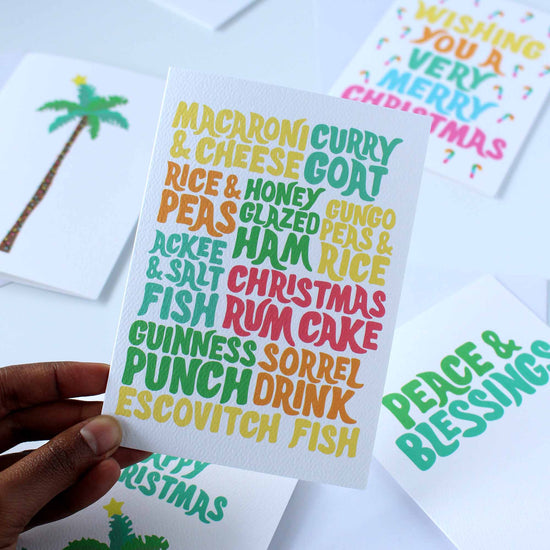 MACARONI
& CHEESE
CURRY
GOAT
RICE &
PEAS
HONEY
GLAZED
HAM
GUNGO
PEAS &
RICE
ACKEE
& SALT
FISH
CHRISTMAS
RUM CAKE
GUINNESS
PUNCH
SORREL
DRINK
ESCOVITCH FISH
WISHING
YOU A
VERY
MERRY
CHRISTMAS
PEACE &
BLESSINGS
HAPPY
CHRISTMAS